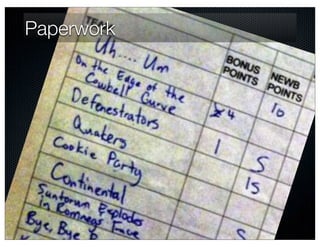 Paperwork
BONUS POINTS NEWB POINTS
Uh.... Um
On the Edge of the
Cowbell Curve 4 10
Defenestrators
Quakers 1 5
Cookie Party 15
Continental
Santorum Explodes
in Romneys Face 5
Bye, Bye